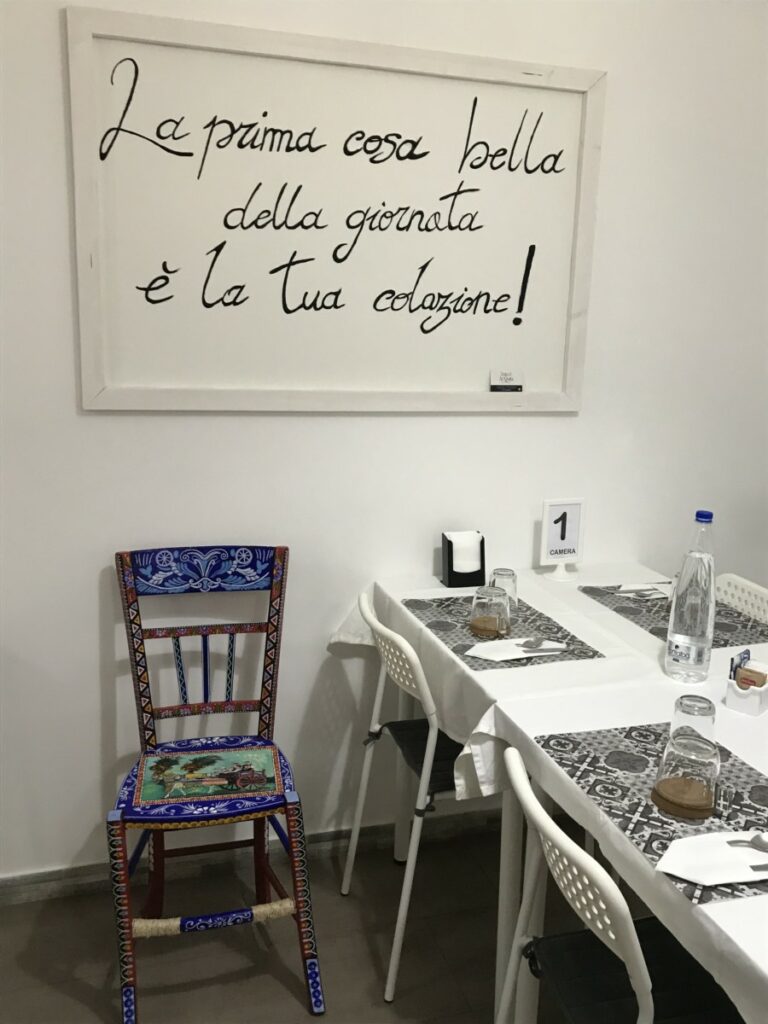 La prima cosa bella
della giornata
è la tua colazione!
1
CAMERA